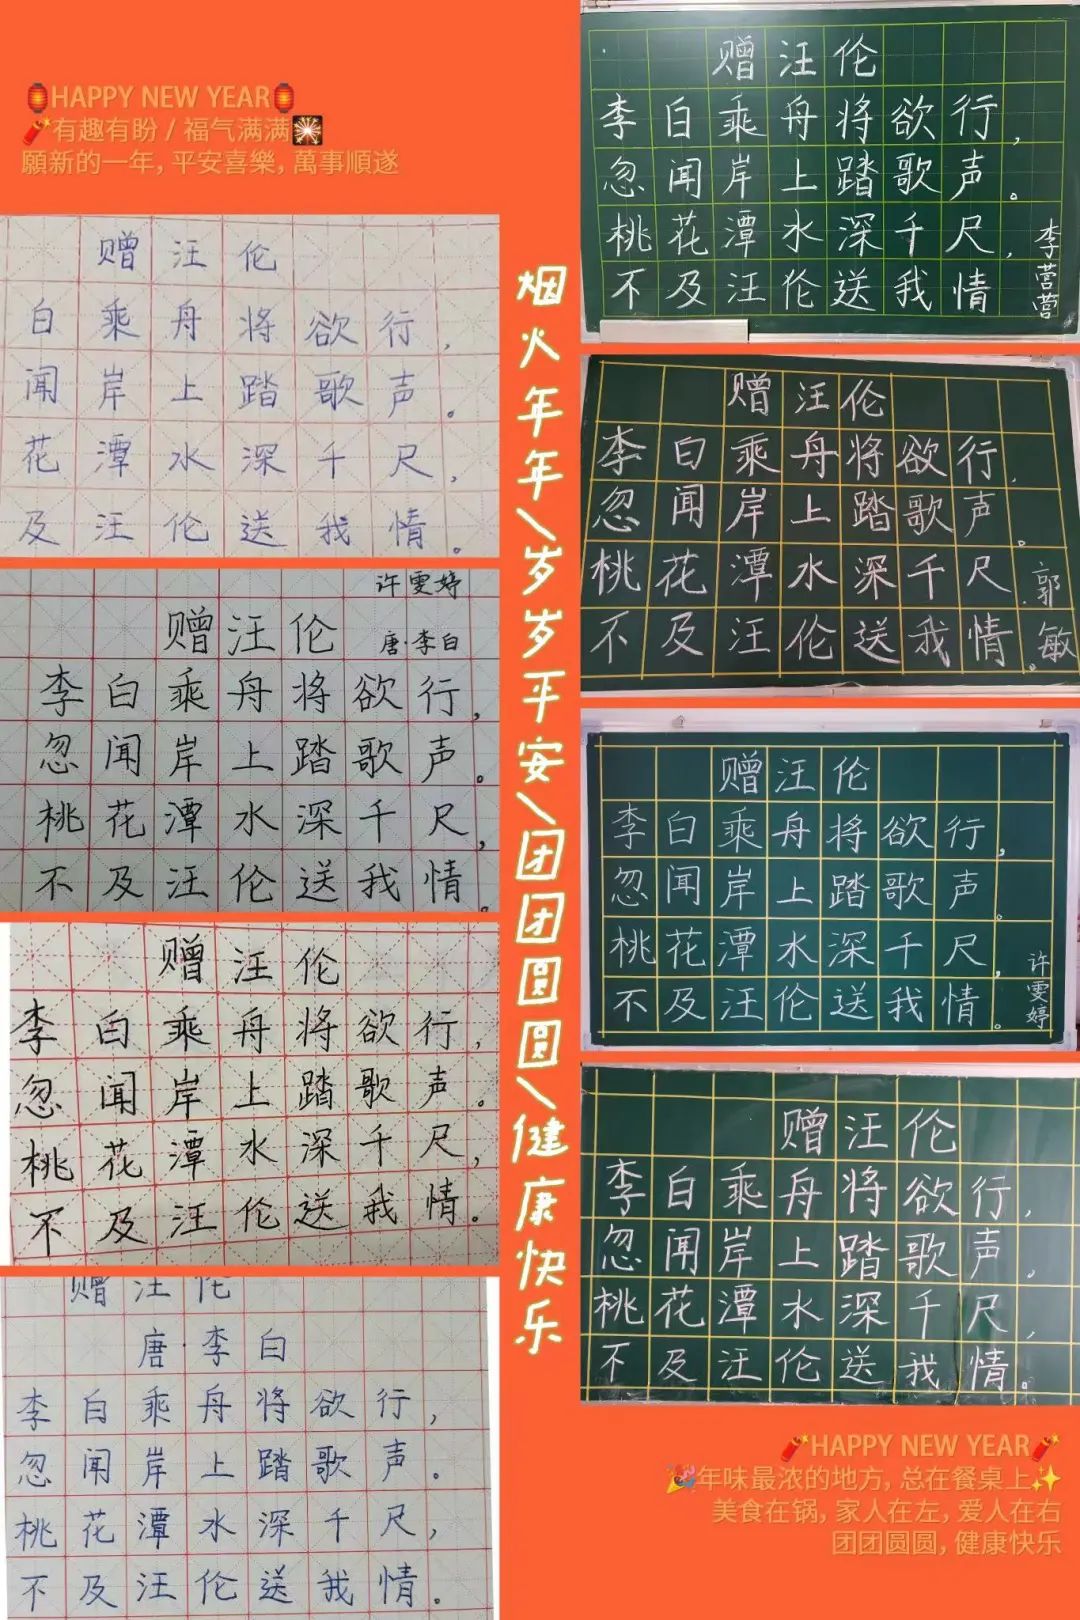 🏮HAPPY NEW YEAR🏮
🧨有趣有盼 / 福气满满🎇
願新的一年, 平安喜樂, 萬事順遂
赠汪伦
白乘舟将欲行,
闻岸上踏歌声。
花潭水深千尺,
及汪伦送我情。
许雯婷
赠汪伦
唐·李白
李白乘舟将欲行,
忽闻岸上踏歌声。
桃花潭水深千尺,
不及汪伦送我情。
赠汪伦
李白乘舟将欲行,
忽闻岸上踏歌声。
桃花潭水深千尺,
不及汪伦送我情。
赠汪伦
唐·李白
李白乘舟将欲行,
忽闻岸上踏歌声。
桃花潭水深千尺,
不及汪伦送我情。
烟火年年\岁岁平安\团团圆圆\健康快乐
赠汪伦
李白乘舟将欲行,
忽闻岸上踏歌声。
桃花潭水深千尺,
不及汪伦送我情
李营营
赠汪伦
李白乘舟将欲行,
忽闻岸上踏歌声。
桃花潭水深千尺
不及汪伦送我情。
郭敏
赠汪伦
李白乘舟将欲行,
忽闻岸上踏歌声。
桃花潭水深千尺,
不及汪伦送我情。
许雯婷
赠汪伦
李白乘舟将欲行,
忽闻岸上踏歌声。
桃花潭水深千尺,
不及汪伦送我情。
🧨HAPPY NEW YEAR🧨
🎉年味最浓的地方, 总在餐桌上✨
美食在锅, 家人在左, 爱人在右
团团圆圆, 健康快乐